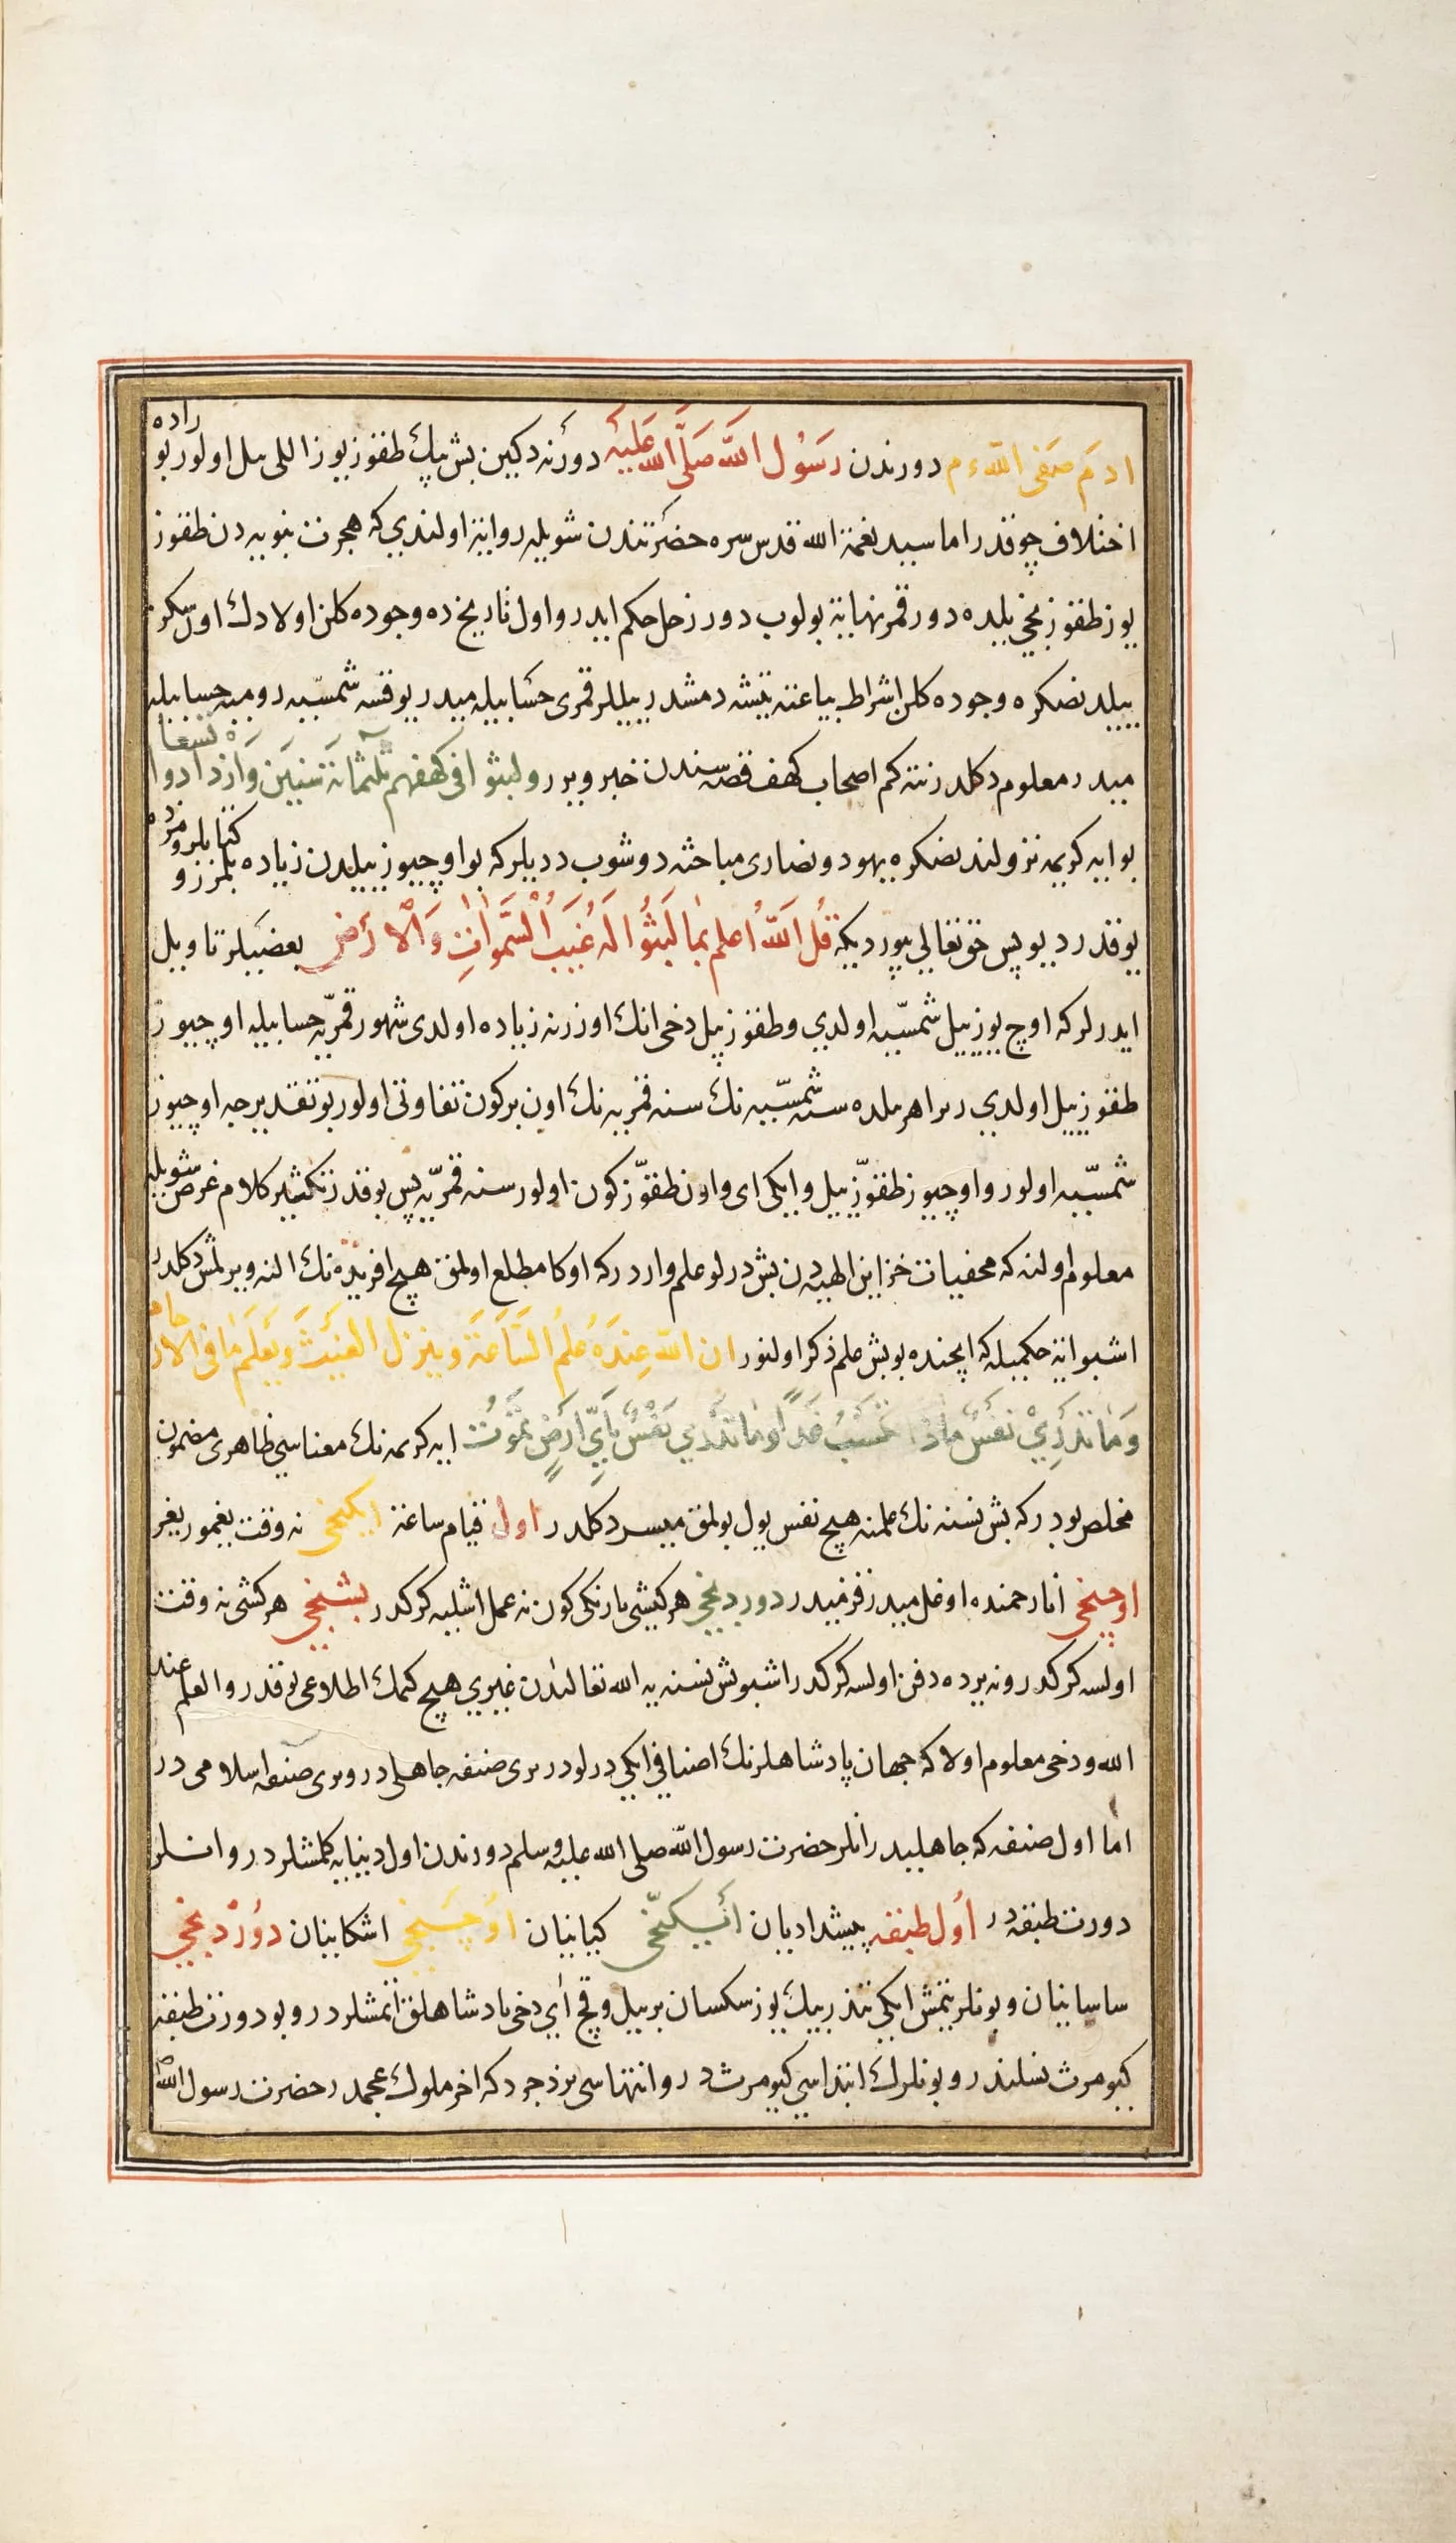 ادم صفی الله ءم دورندن رسول الله صلی الله علیه دورنه دکین بش بیك طقوز یوز اللی یل اولور بو راده
اختلاف چوقدر اما سید نعمة الله قدس سره حضرتندن شویله روایة اولندی که هجرت نبویه دن طقوز
یوز طقوزنجی یلده دور قمر نهایة بولوب دور زحل حکم ایدر و اول تاریخده وجوده کلن اولادك اول سکز
ییلدنصکره وجوده کلن اشراط یاعته یتشدمشدر ییللر قمری حسابیله میدر یوقسه شمسیه رومیه حسابیله
میدر معلوم دکلدر نته کم اصحاب کهف قصه سندن خبر ویرر ولبثوا فی کهفهم ثلثمائة سنین وازدادوا تسعا
بو ایه کریمه نزولندنصکره یهود و نصاری مباحثه دوشوب ددیلر که بو اوچیوز ییلدن زیاده بلمزز و کتابلرومزده
یوقدر دیو پس حق تعالی بیوردیکه قل الله اعلم بما لبثوا له غیب السموات والارض بعضیلر تاویل
ایدرلر که اوچ یوز ییل شمسیه اولدی و طقوز ییل دخی انك اوزرنه زیاده اولدی شهور قمریه حسابیله اوچیوز
طقوز ییل اولدی زیرا هر یلده سنه شمسیه نك سنه قمریه نك اون بر کون تفاوتی اولور بو تقدیرجه اوچیوز
شمسیه اولور و اوچیوز طقوز ییل و ایکی ای و اون طقوز کون اولور سنه قمریه پس بو قدر تکثیر کلام غرض شویله
معلوم اولنه که مخفیات خزاین الهیه دن بش درلو علم واردر که اوکا مطلع اولمق هیچ افریده نك النه ویرلمش دکلدر
اشبو ایة حکمیله که ایچنده بو بش علم ذکر اولنور ان الله عنده علم الساعة وینزل الغیث ویعلم ما فی الارحام
وما تدری نفس ماذا تکسب غدا وما تدری نفس بای ارض تموت ایه کریمه نك معناسی ظاهری مضمون
مخلص بودر که بش نسنه نك علمنه هیچ نفس یول بولمق میسر دکلدر اول قیام ساعة ایکنجی نه وقت یغمور یغر
اوچنجی انا رحمنده اوغل میدر قزمیدر دوردنجی هر کیشی یارنکی کون نه عمل اشلیه کرکدر بشنجی هر کشی نه وقت
اولسه کرکدر و نه یرده دفن اولسه کرکدر اشبو بش نسنه یه الله تعالیدن غیری هیچ کمك اطلاعی یوقدر والعلم عند
الله و دخی معلوم اولا که جهان پادشاهلرنك اصنافی ایکی درلودر بری صنف جاهلی در و بری صنف اسلامی در
اما اول صنف که جاهلیدر انلر حضرت رسول الله صلی الله علیه وسلم دورندن اول دنیایه کلمشلردر و انلر
دورت طبقه در اول طبقه پیشدادیان ایکنجی کیانیان اوچنجی اشکانیان دوردنجی
ساسانیان و بونلر یتمش ایکی تندر بیك یوز سکسان بر ییل و قچ ای دخی پادشاهلق اتمشلردر و بو دورت طبقه
کیومرث نسلندر و بونلرك ابتداسی کیومرث در و انتهاسی یزدجرد که اخر ملوك عجمدر حضرت رسول الله